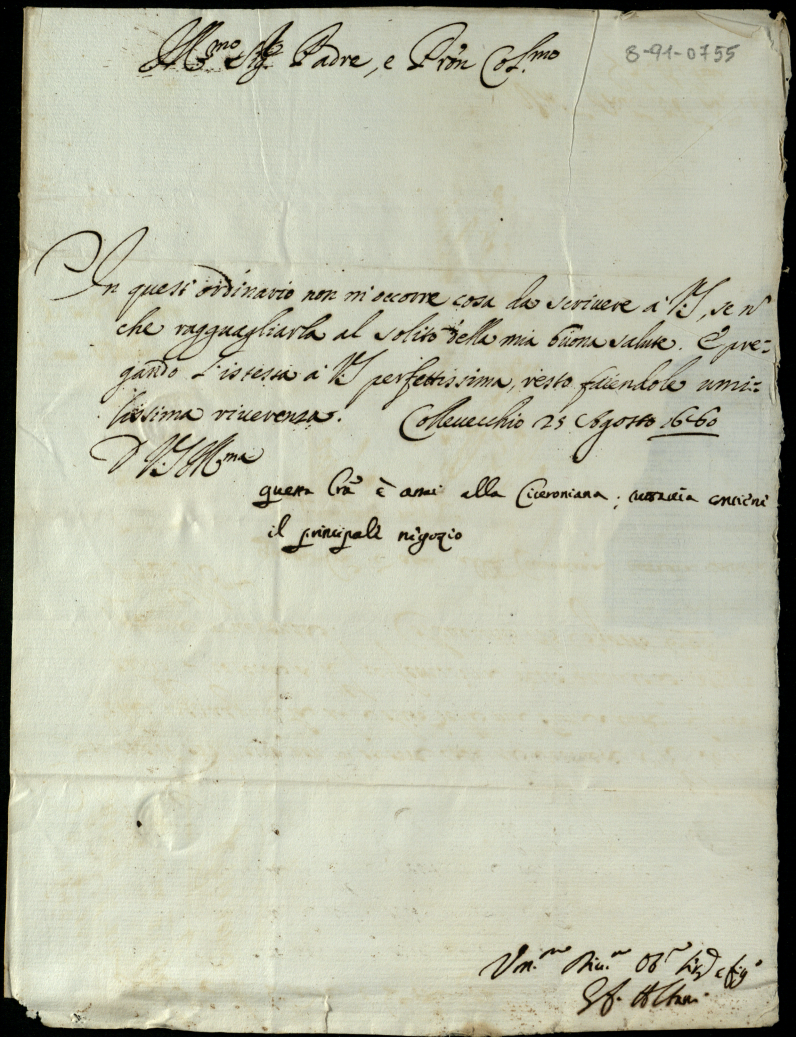 Ill.mo Sig.r Padre, e Pron Col.mo
8-91-0755
In quest' ordinario non m'occorre cosa da scrivere à V.S., se nō
che ragguagliarla al solito della mia buona salute. E pre-
gando l'istessa à V.S. perfettissima, resto facendole umi-
lissima riverenza. Collevecchio 25 Agosto 1660
D V.S. Ill.ma
questa lrā è assai alla Ciceroniana; tuttavia contiene
il principale negozio
Um.mo Div.mo Ob.mo e fig.o